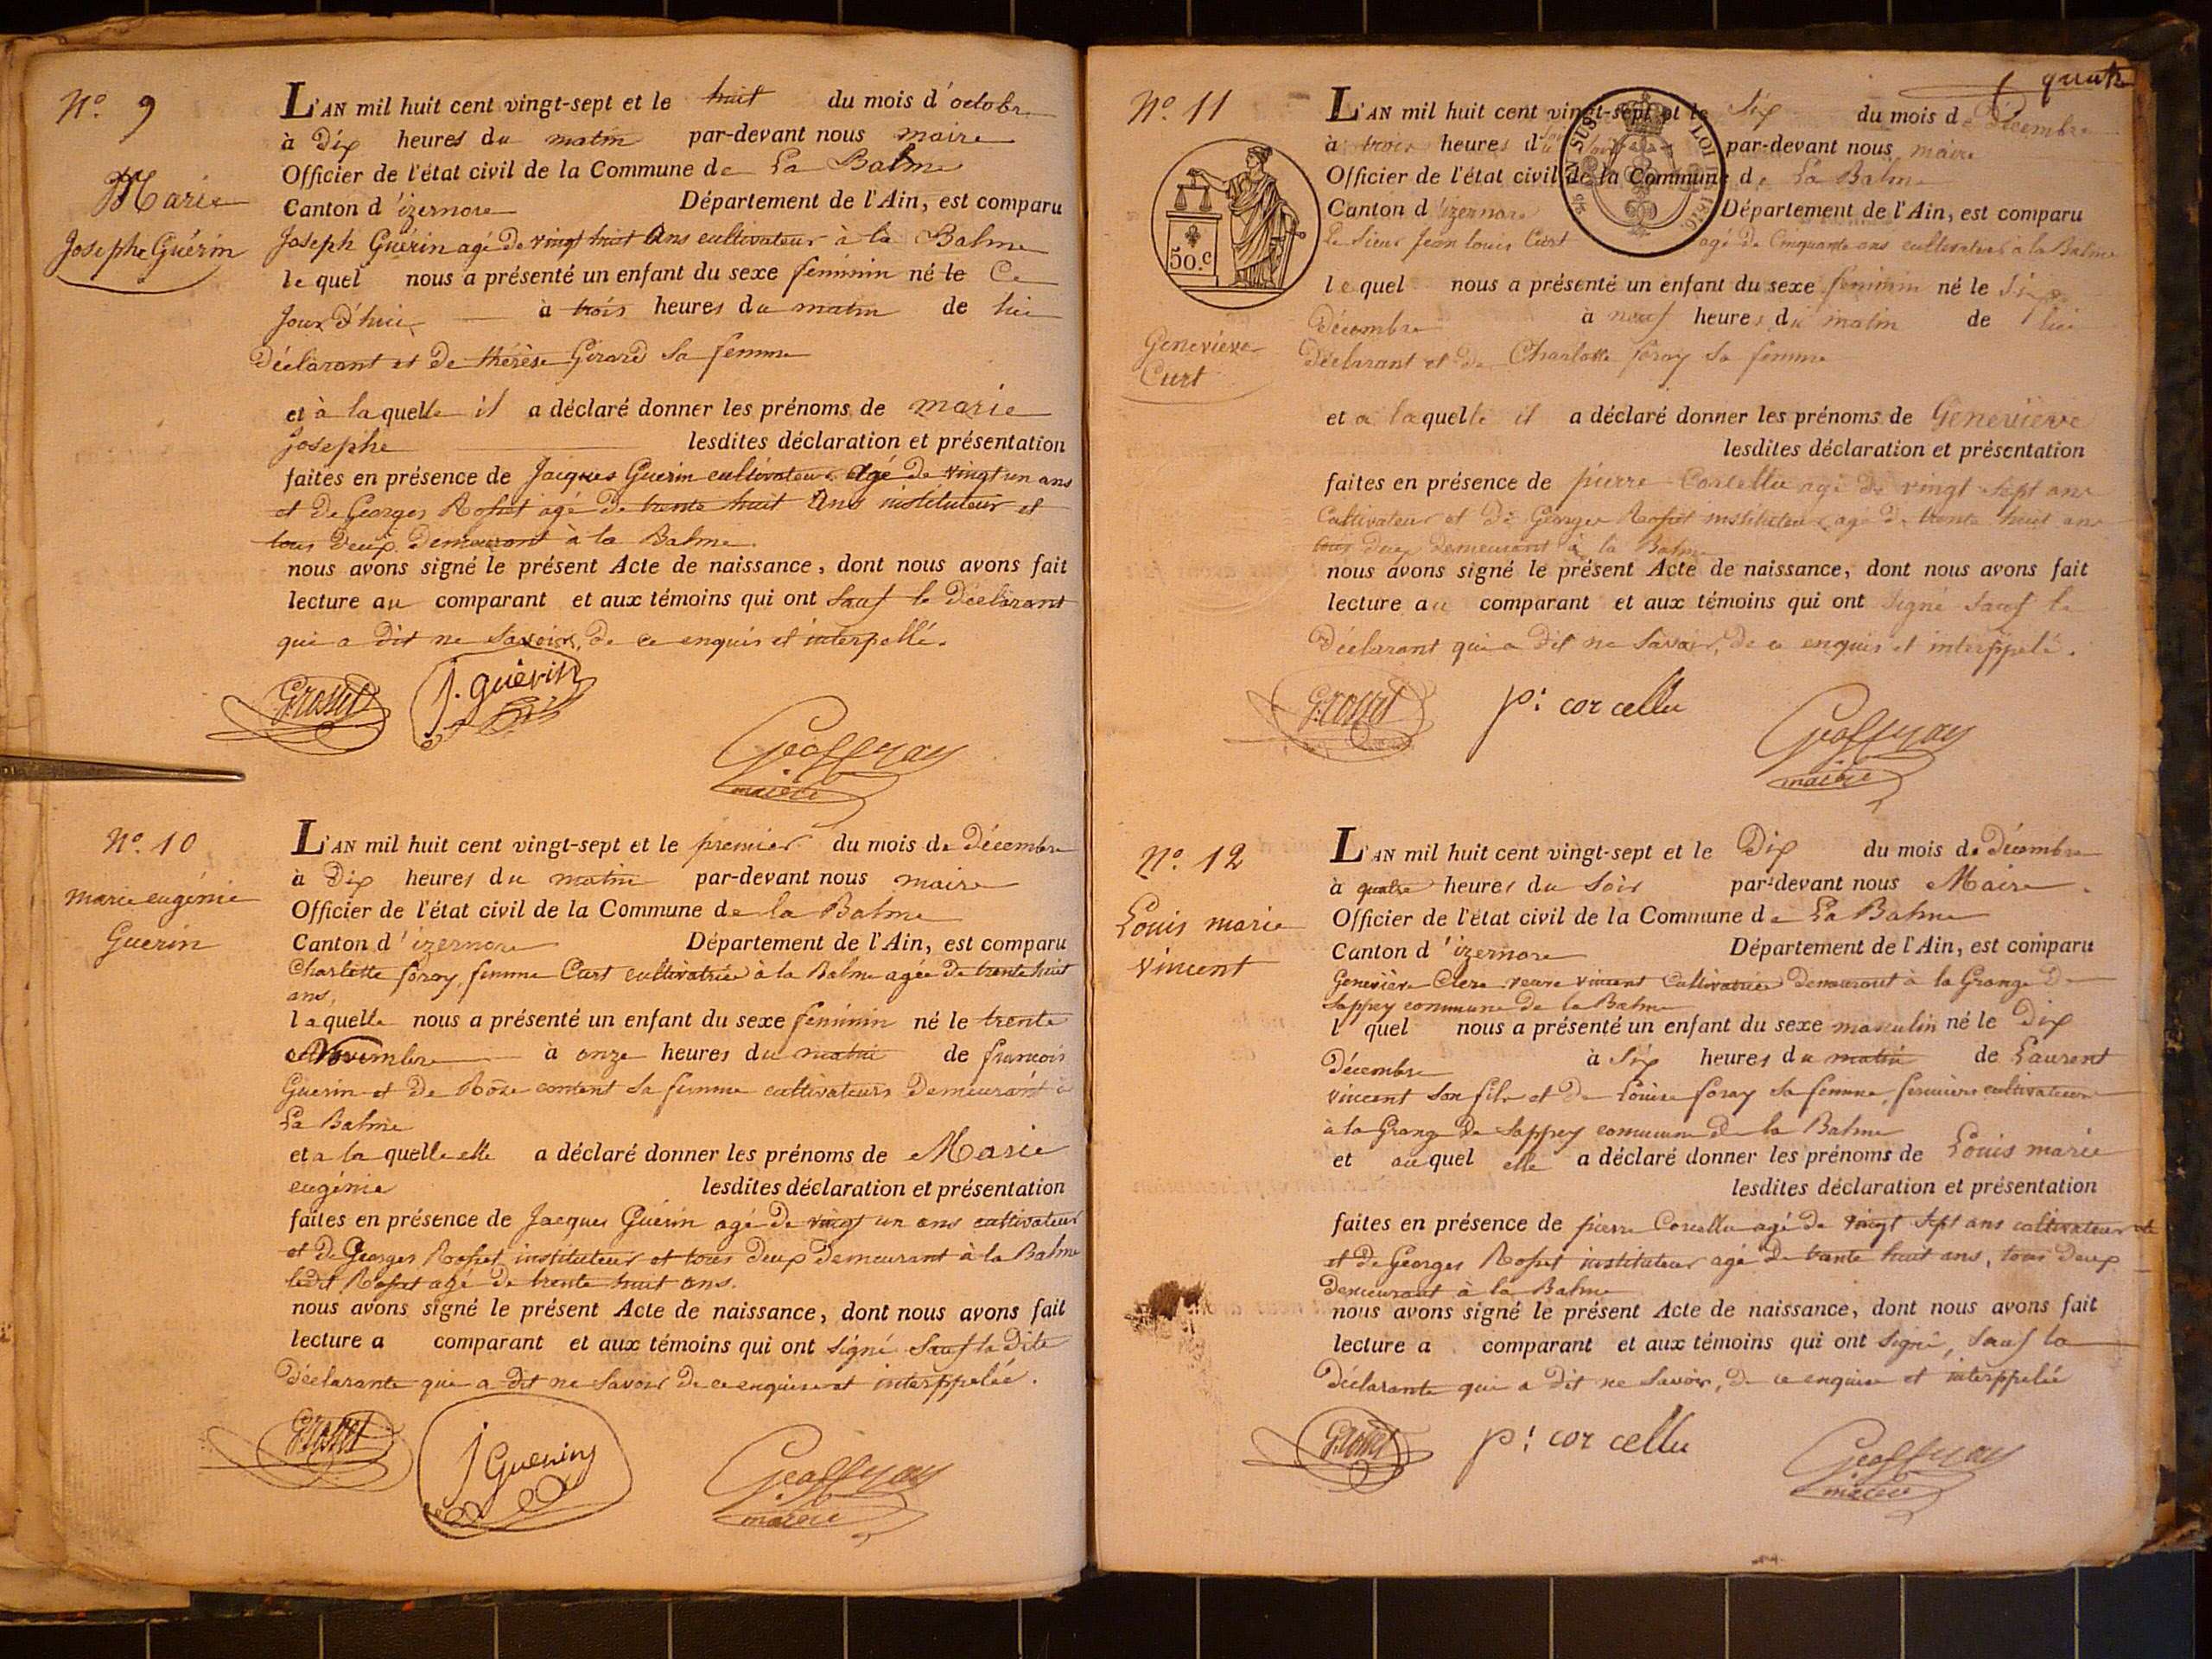 N.º 9
Marie
Josephe Guérin
L'AN mil huit cent vingt-sept et le huit du mois d'octobre
à Dix heures du matin par-devant nous maire
Officier de l'état civil de la Commune de La Balme
Canton d'izernore Département de l'Ain, est comparu
Joseph Guérin agé de vingt huit Ans cultivateur à la Balme
lequel nous a présenté un enfant du sexe féminin né le Ce
Jour d'hui à trois heures du matin de lui
Déclarant et De thérèse Girard Sa femme
et à laquelle il a déclaré donner les prénoms de marie
Josephe lesdites déclaration et présentation
faites en présence de Jacques Guerin cultivateur Agé De vingt un ans
et De Georges Rosset agé De trente huit Ans instituteur et
tous Deux Demeurant à la Balme
nous avons signé le présent Acte de naissance, dont nous avons fait
lecture au comparant et aux témoins qui ont Sauf le Déclarant
qui a Dit ne Savoir, De ce enquis et interpellé.
G. rosset J. guérin
Geoffray
maire
N.º 10
marie eugénie
Guerin
L'AN mil huit cent vingt-sept et le premier du mois de Décembre
à Dix heures du matin par-devant nous maire
Officier de l'état civil de la Commune de la Balme
Canton d'izernore Département de l'Ain, est comparu
Charlotte foray, femme Curt cultivatrice à la Balme agée De trente huit
ans,
laquelle nous a présenté un enfant du sexe féminin né le trente
Novembre à onze heures du matin de francois
Guerin et De Rose content Sa femme cultivateurs Demeurant à
La Balme
et a la quelle elle a déclaré donner les prénoms de Marie
eugénie lesdites déclaration et présentation
faites en présence de Jacques Guerin agé De vingt un ans cultivateur
et De Georges Rosset instituteur et tous Deux Demeurant à la Balme
ledit Rosset agé De trente huit ans.
nous avons signé le présent Acte de naissance, dont nous avons fait
lecture a comparant et aux témoins qui ont signé Sauf la Dite
Déclarante qui a Dit ne Savoir De ce enquise et interppelée.
G. rosset J Guerin
Geoffray
maire
quatre
N.º 11
50.c
Geneviève
Curt
L'AN mil huit cent vingt-sept et le Six du mois de Décembre
à trois heures du Soir par-devant nous maire
Officier de l'état civil de la Commune de La Balme
Canton d'izernore Département de l'Ain, est comparu
Le Sieur Jean Louis Curt agé De Cinquante ans cultivateur à la Balme
lequel nous a présenté un enfant du sexe féminin né le Six
Décembre à neuf heures du matin de lui
Déclarant et De Charlotte foray Sa femme
et a laquelle il a déclaré donner les prénoms de Genevieve
lesdites déclaration et présentation
faites en présence de pierre Corcellu agé De vingt Sept ans
Cultivateur et De Georges Rosset instituteur agé De trente huit ans
tous deux Demeurant à la Balme
nous avons signé le présent Acte de naissance, dont nous avons fait
lecture au comparant et aux témoins qui ont signé Sauf le
Déclarant qui a Dit ne Savoir, De ce enquis et interppelé.
G. rosset p: corcellu
Geoffray
maire
N.º 12
Louis marie
vincent
L'AN mil huit cent vingt-sept et le Dix du mois de Décembre
à quatre heures du Soir par-devant nous Maire
Officier de l'état civil de la Commune de La Balme
Canton d'izernore Département de l'Ain, est comparu
Geneviève Clerc veuve vincent Cultivatrice Demeurant à la Grange De
Sappey commune De la Balme
l quel nous a présenté un enfant du sexe masculin né le Dix
Décembre à Six heures du matin de Laurent
vincent Son fils et De Louise foray Sa femme, fermiers cultivateurs
à la Grange De Sappey commune De la Balme
et auquel elle a déclaré donner les prénoms de Louis marie
lesdites déclaration et présentation
faites en présence de pierre Corcellu agé De vingt Sept ans cultivateur
et De Georges Rosset instituteur agé De trente huit ans, tous Deux
Demeurant à la Balme
nous avons signé le présent Acte de naissance, dont nous avons fait
lecture a comparant et aux témoins qui ont signé, Sauf la
Déclarante qui a Dit ne Savoir, De ce enquise et interppelée
G. rosset p: corcellu
Geoffray
maire